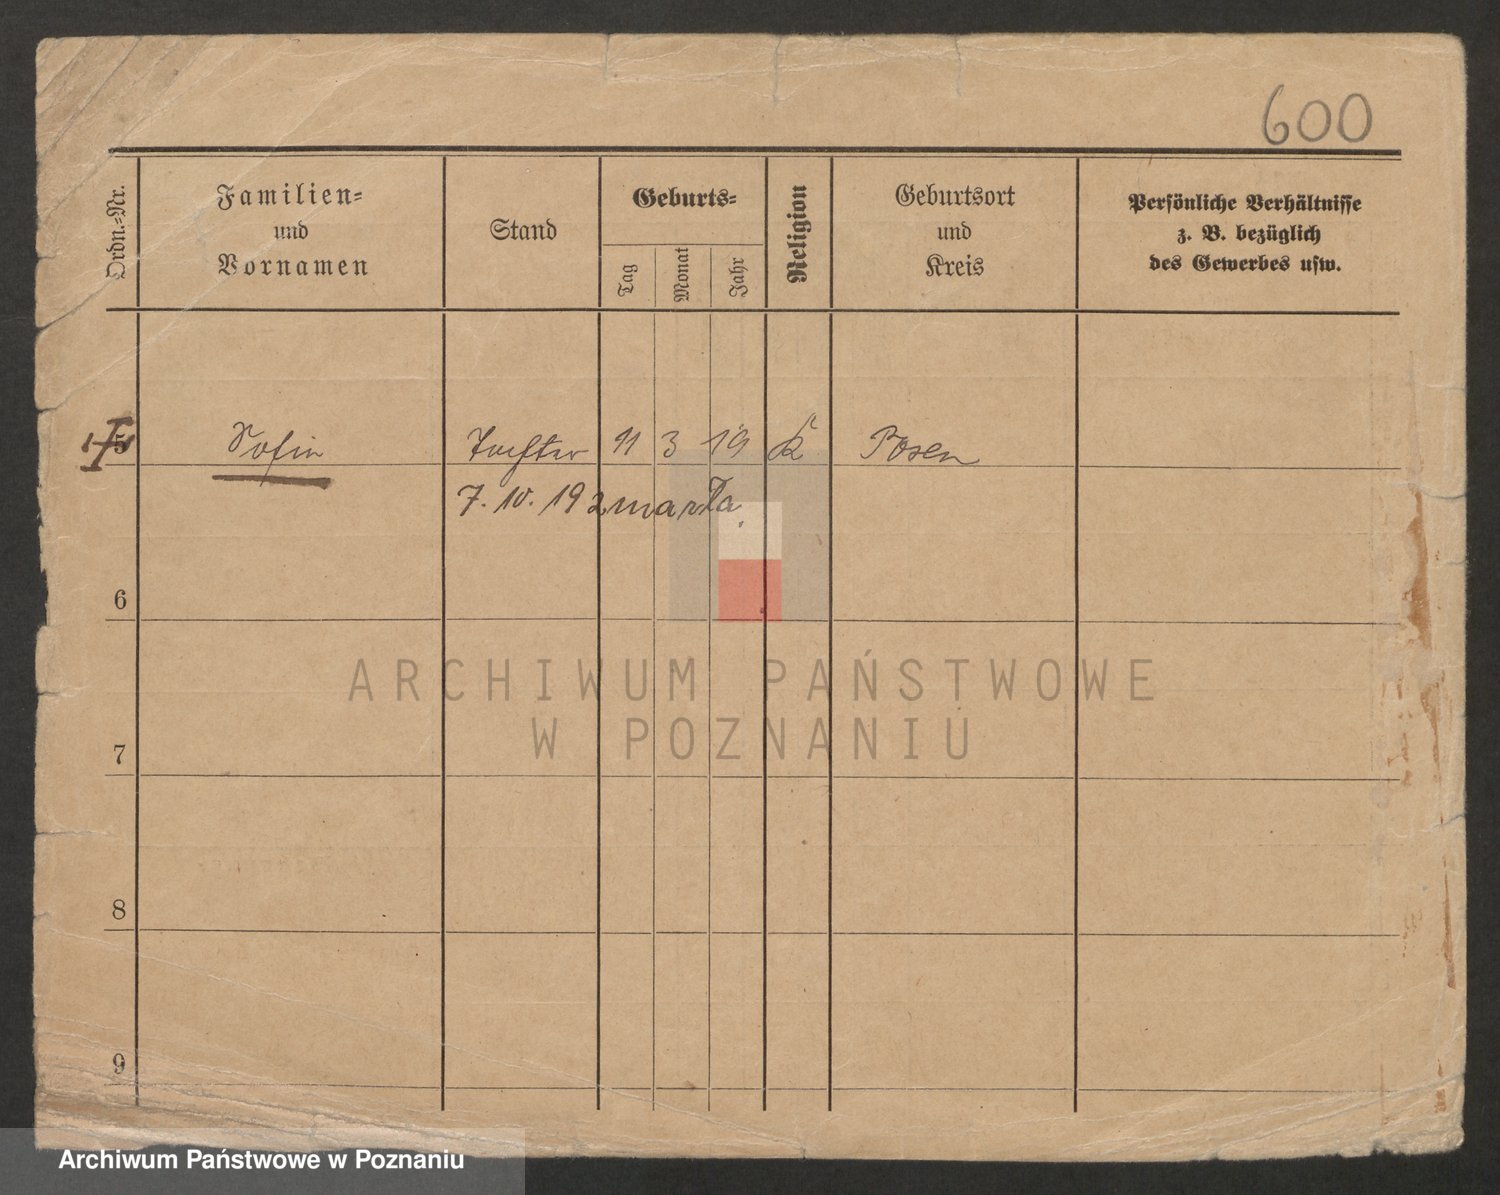 600
Ordn.=Nr.
Familien=
und
Vornamen
Stand
Geburts=
Tag
Monat
Jahr
Religion
Geburtsort
und
Kreis
Persönliche Verhältnisse
z. B. bezüglich
des Gewerbes usw.
5 Sofie Tochter 11 3 19 K Posen
7. 10. 192 marła
6
7
8
9
ARCHIWUM PAŃSTWOWE
W POZNANIU
Archiwum Państwowe w Poznaniu